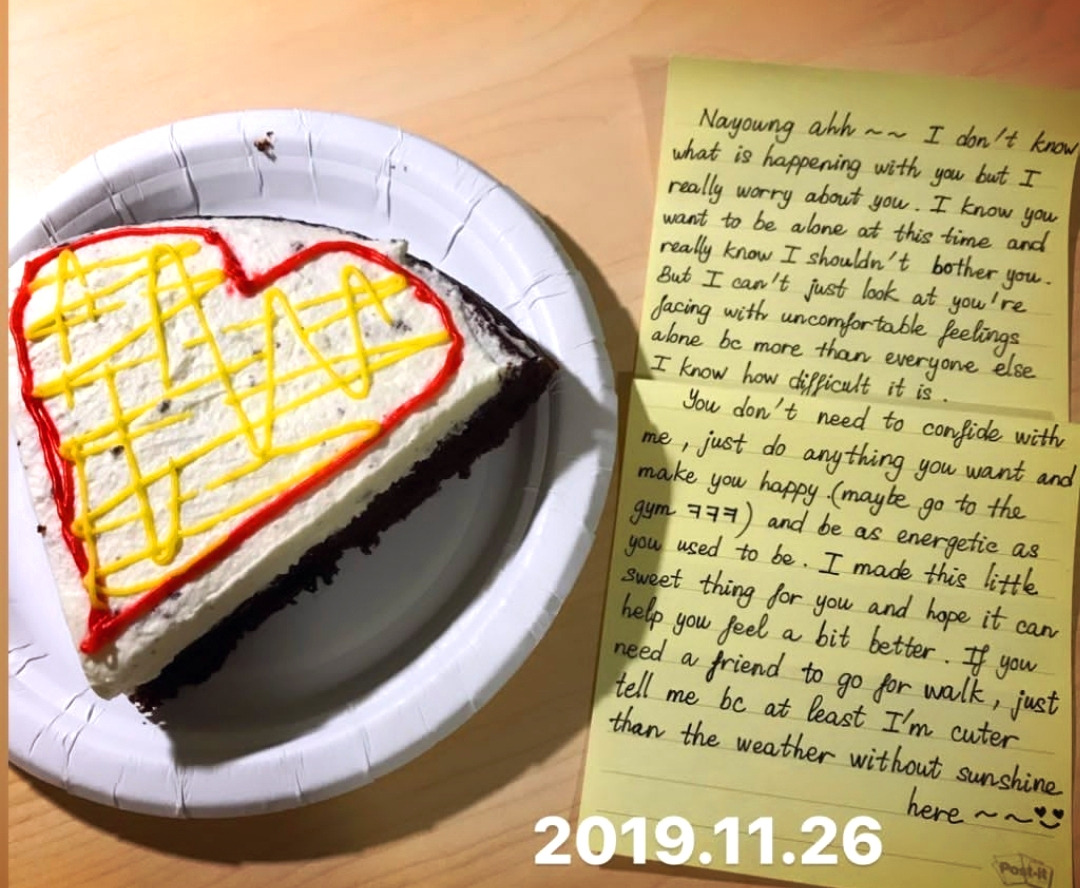 Nayoung ahh ~ ~ I don't know
what is happening with you but I
really worry about you. I know you
want to be alone at this time and
really know I shouldn't bother you.
But I can't just look at you're
facing with uncomfortable feelings
alone bc more than everyone else
I know how difficult it is.
You don't need to confide with
me, just do anything you want and
make you happy. (maybe go to the
gym ㅋㅋㅋ) and be as energetic as
you used to be. I made this little
sweet thing for you and hope it can
help you feel a bit better. If you
need a friend to go for walk, just
tell me bc at least I'm cuter
than the weather without sunshine
here ~ ~
2019.11.26
Post-it